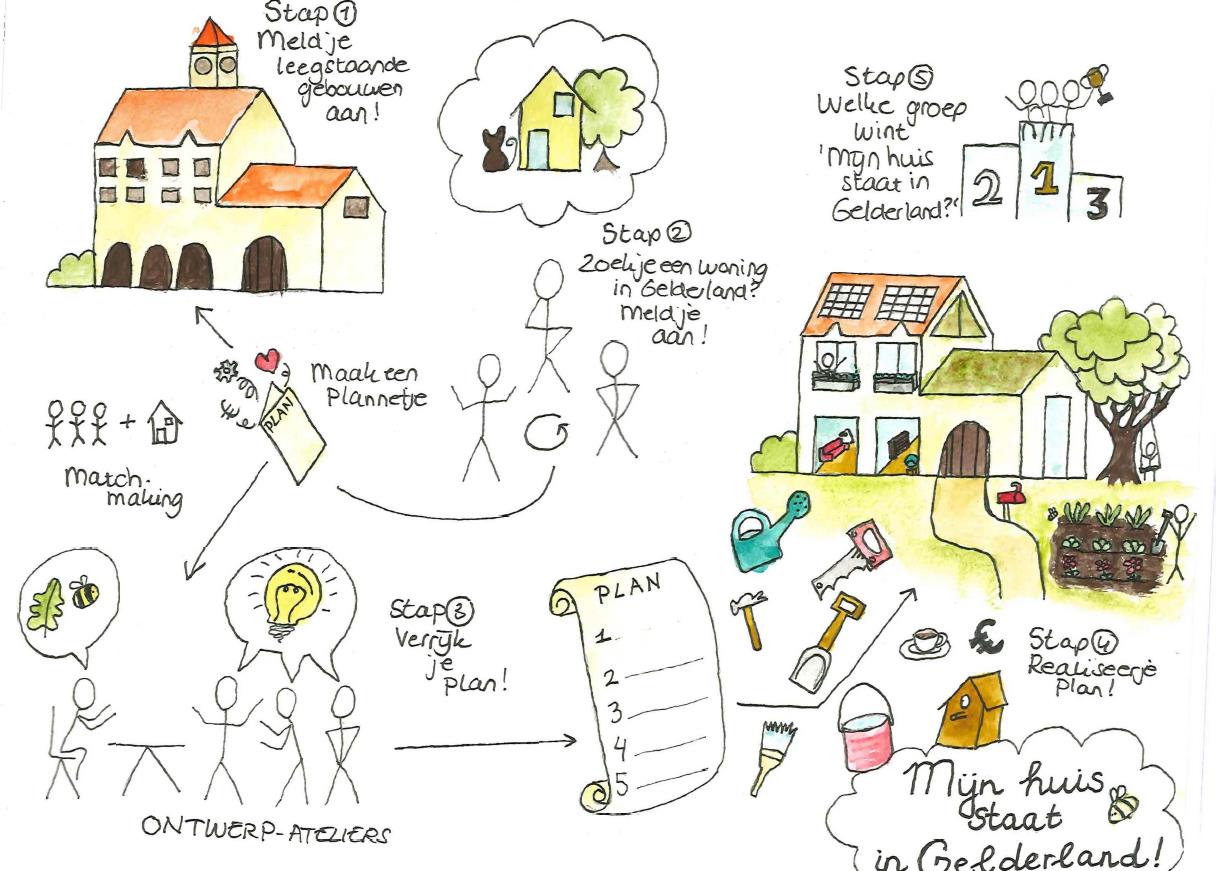 Stap 1
Meld je
leegstaande
gebouwen
aan!
Stap 2
Zoek je een woning
in Gelderland?
Meld je
aan!
Stap 5
Welke groep
wint
'Mijn huis
staat in
Gelderland?'
2
1
3
Maak een
Plannetje
PLAN!
+
Match-
making
Stap 3
Verrijk
je
Plan!
PLAN
1
2
3
4
5
€
Stap 4
Realiseer je
Plan!
ONTWERP-ATELIERS
Mijn huis
staat
in Gelderland!